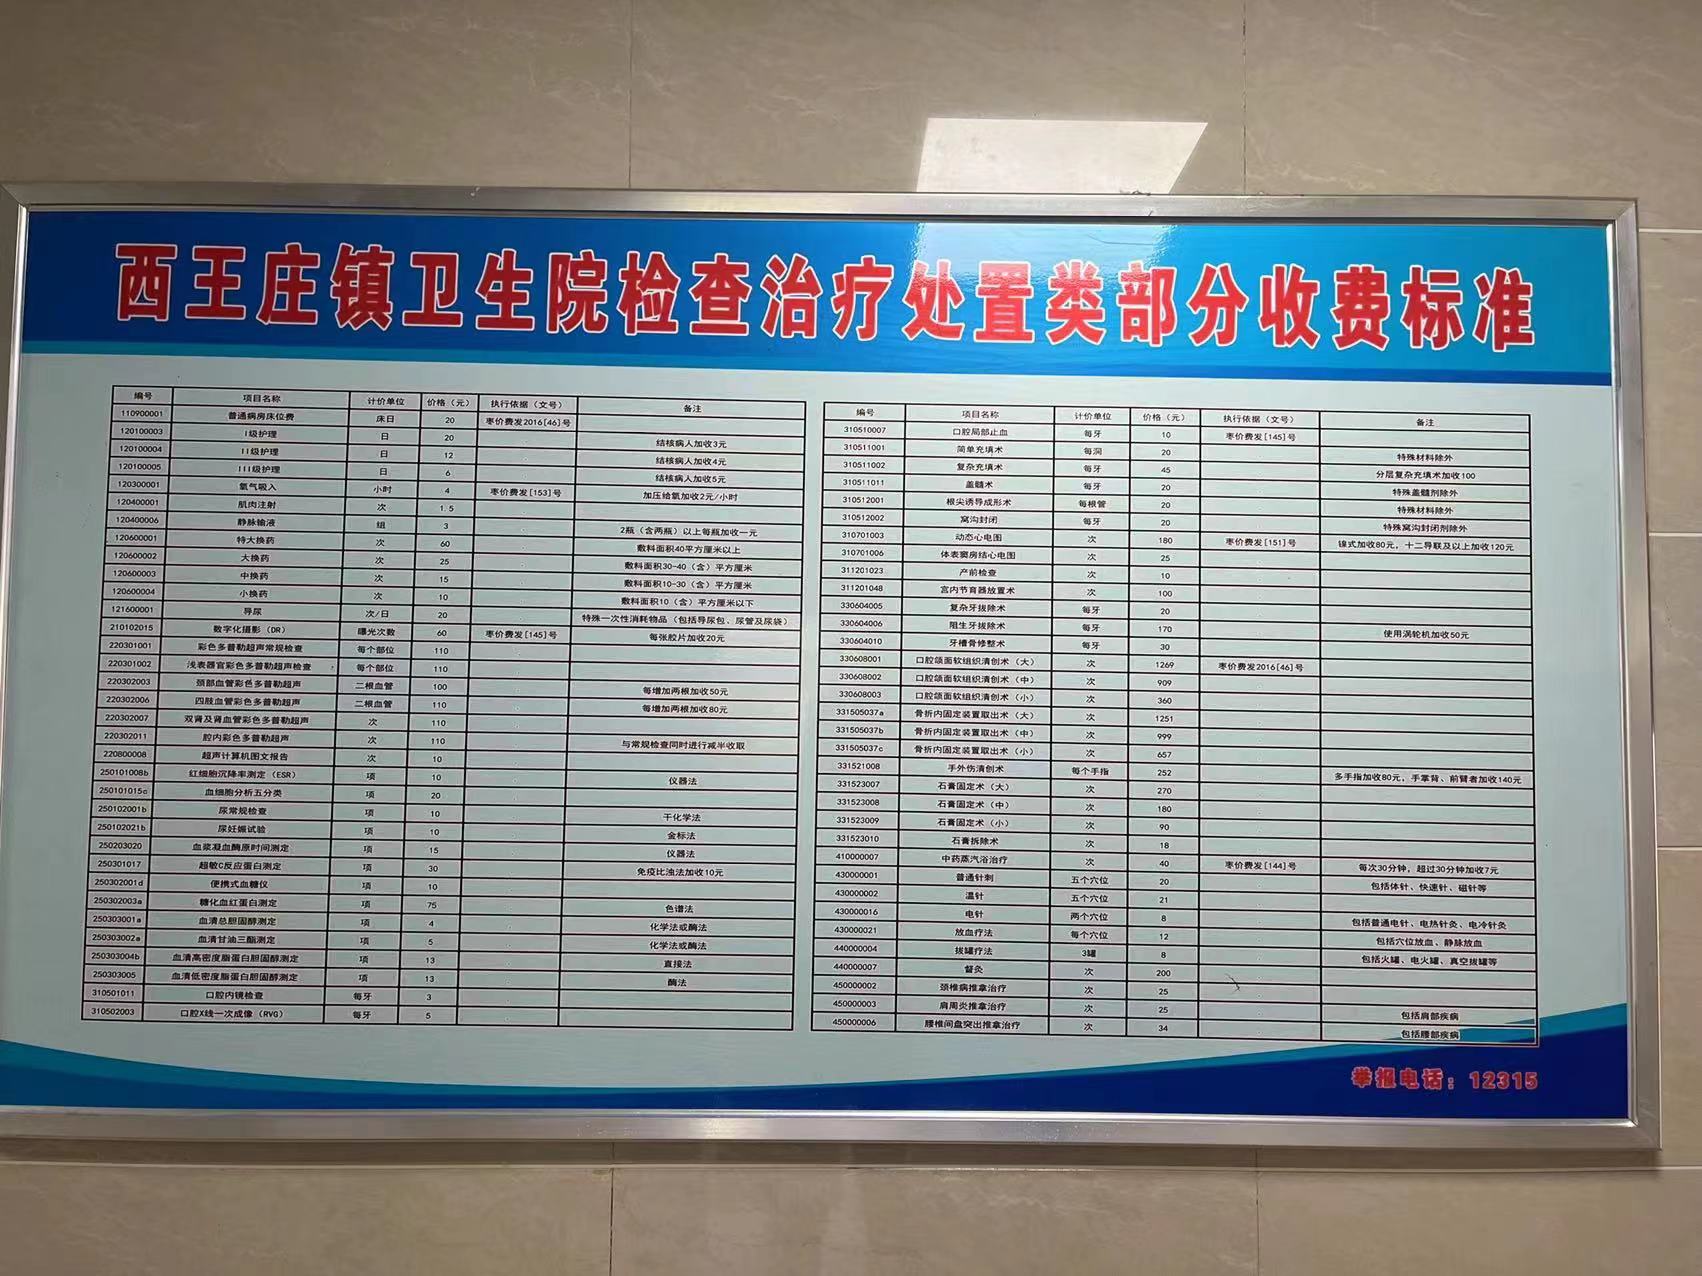 西王庄镇卫生院检查治疗处置类部分收费标准
编号 项目名称 计价单位 价格（元） 执行依据（文号） 备注
110900001 普通病房床位费 床日 20 枣价费发2016[46]号
120100003 I级护理 日 20 结核病人加收3元
120100004 II级护理 日 12 结核病人加收4元
120100005 III级护理 日 6 结核病人加收5元
120300001 氧气吸入 小时 4 枣价费发[153]号 加压给氧加收2元/小时
120400001 肌肉注射 次 1.5
120400006 静脉输液 组 3 2瓶（含两瓶）以上每瓶加收一元
120600001 特大换药 次 60 敷料面积40平方厘米以上
120600002 大换药 次 25 敷料面积30-40（含）平方厘米
120600003 中换药 次 15 敷料面积10-30（含）平方厘米
120600004 小换药 次 10 敷料面积10（含）平方厘米以下
121600001 导尿 次/日 20 特殊一次性消耗物品（包括导尿包、尿管及尿袋）
210102015 数字化摄影（DR） 曝光次数 60 枣价费发[145]号 每张胶片加收20元
220301001 彩色多普勒超声常规检查 每个部位 110
220301002 浅表器官彩色多普勒超声检查 每个部位 110
220302003 颈部血管彩色多普勒超声 二根血管 100 每增加两根加收50元
220302006 四肢血管彩色多普勒超声 二根血管 110 每增加两根加收80元
220302007 双肾及肾血管彩色多普勒超声 次 110
220302011 腔内彩色多普勒超声 次 110 与常规检查同时进行减半收取
220800008 超声计算机图文报告 次 10
250101008b 红细胞沉降率测定（ESR） 项 10 仪器法
250101015c 血细胞分析五分类 项 20
250102001b 尿常规检查 项 10 干化学法
250102021b 尿妊娠试验 项 10 金标法
250203020 血浆凝血酶原时间测定 项 15 仪器法
250301017 超敏C反应蛋白测定 项 30 免疫比浊法加收10元
250302001d 便携式血糖仪 项 10
250302003a 糖化血红蛋白测定 项 75 色谱法
250303001a 血清总胆固醇测定 项 4 化学法或酶法
250303002a 血清甘油三酯测定 项 5 化学法或酶法
250303004b 血清高密度脂蛋白胆固醇测定 项 13 直接法
250303005 血清低密度脂蛋白胆固醇测定 项 13 酶法
310501011 口腔内镜检查 每牙 3
310502003 口腔X线一次成像（RVG） 每牙 5
编号 项目名称 计价单位 价格（元） 执行依据（文号） 备注
310510007 口腔局部止血 每牙 10 枣价费发[145]号
310511001 简单充填术 每洞 20 特殊材料除外
310511002 复杂充填术 每牙 45 分层复杂充填术加收100
310511011 盖髓术 每牙 20 特殊盖髓剂除外
310512001 根尖诱导成形术 每根管 20 特殊材料除外
310512002 窝沟封闭 每牙 20 特殊窝沟封闭剂除外
310701003 动态心电图 次 180 枣价费发[151]号 镍式加收80元，十二导联及以上加收120元
310701006 体表窦房结心电图 次 25
311201023 产前检查 次 10
311201048 宫内节育器放置术 次 100
330604005 复杂牙拔除术 每牙 20
330604006 阻生牙拔除术 每牙 170 使用涡轮机加收50元
330604010 牙槽骨修整术 每牙 30
330608001 口腔颌面软组织清创术（大） 次 1269 枣价费发2016[46]号
330608002 口腔颌面软组织清创术（中） 次 909
330608003 口腔颌面软组织清创术（小） 次 360
331505037a 骨折内固定装置取出术（大） 次 1251
331505037b 骨折内固定装置取出术（中） 次 999
331505037c 骨折内固定装置取出术（小） 次 657
331521008 手外伤清创术 每个手指 252 多手指加收80元，手掌背、前臂者加收140元
331523007 石膏固定术（大） 次 270
331523008 石膏固定术（中） 次 180
331523009 石膏固定术（小） 次 90
331523010 石膏拆除术 次 18
410000007 中药蒸汽浴治疗 次 40 枣价费发[144]号 每次30分钟，超过30分钟加收7元
430000001 普通针刺 五个穴位 20 包括体针、快速针、磁针等
430000002 温针 五个穴位 21
430000016 电针 两个穴位 8 包括普通电针、电热针灸、电冷针灸
430000021 放血疗法 每个穴位 12 包括穴位放血、静脉放血
440000004 拔罐疗法 3罐 8 包括火罐、电火罐、真空拔罐等
440000007 督灸 次 200
450000002 颈椎病推拿治疗 次 25
450000003 肩周炎推拿治疗 次 25 包括肩部疾病
450000006 腰椎间盘突出推拿治疗 次 34 包括腰部疾病
举报电话：12315